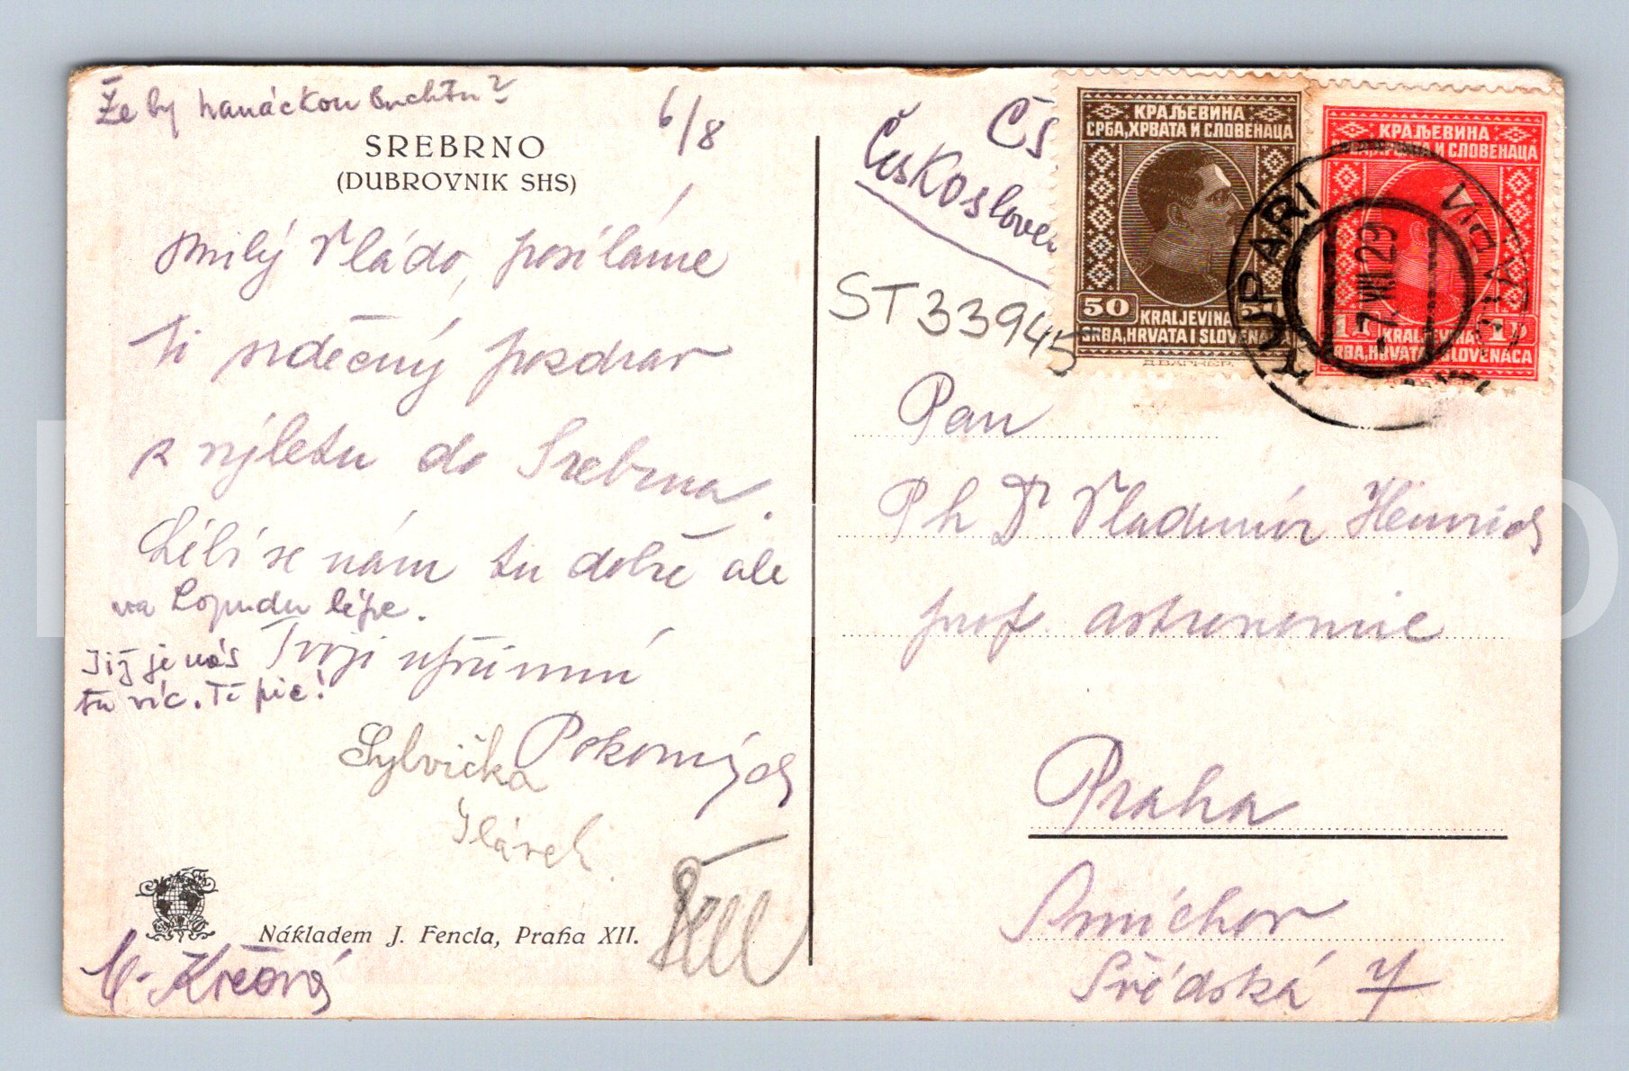 Že by hanáckou buchtu?
6/8
SREBRNO
(DUBROVNIK SHS)
Milý Vládo, posíláme
ti srdečný pozdrav
z výletu do Srebrna.
Líbí se nám tu dobře ale
na Lopudu lépe.
Již je nás Tvoji upřímní
tu víc.
Pokorných
Sylvička
Nákladem J. Fencla, Praha XII.
ČS
Českosloven
ST33945
КРАЉЕВИНА
СРБА, ХРВАТА И СЛОВЕНАЦА
50
KRALJEVINA
SRBA, HRVATA I SLOVENA
КРАЉЕВИНА
И СЛОВЕНАЦА
1
KRALJEVINA
RBA, HRVATA I SLOVENACA
KUPARI
7. VIII 29
Pan
Ph Dr Vladimír Heinrich
prof. astronomie
Praha
Smíchov
Švédská